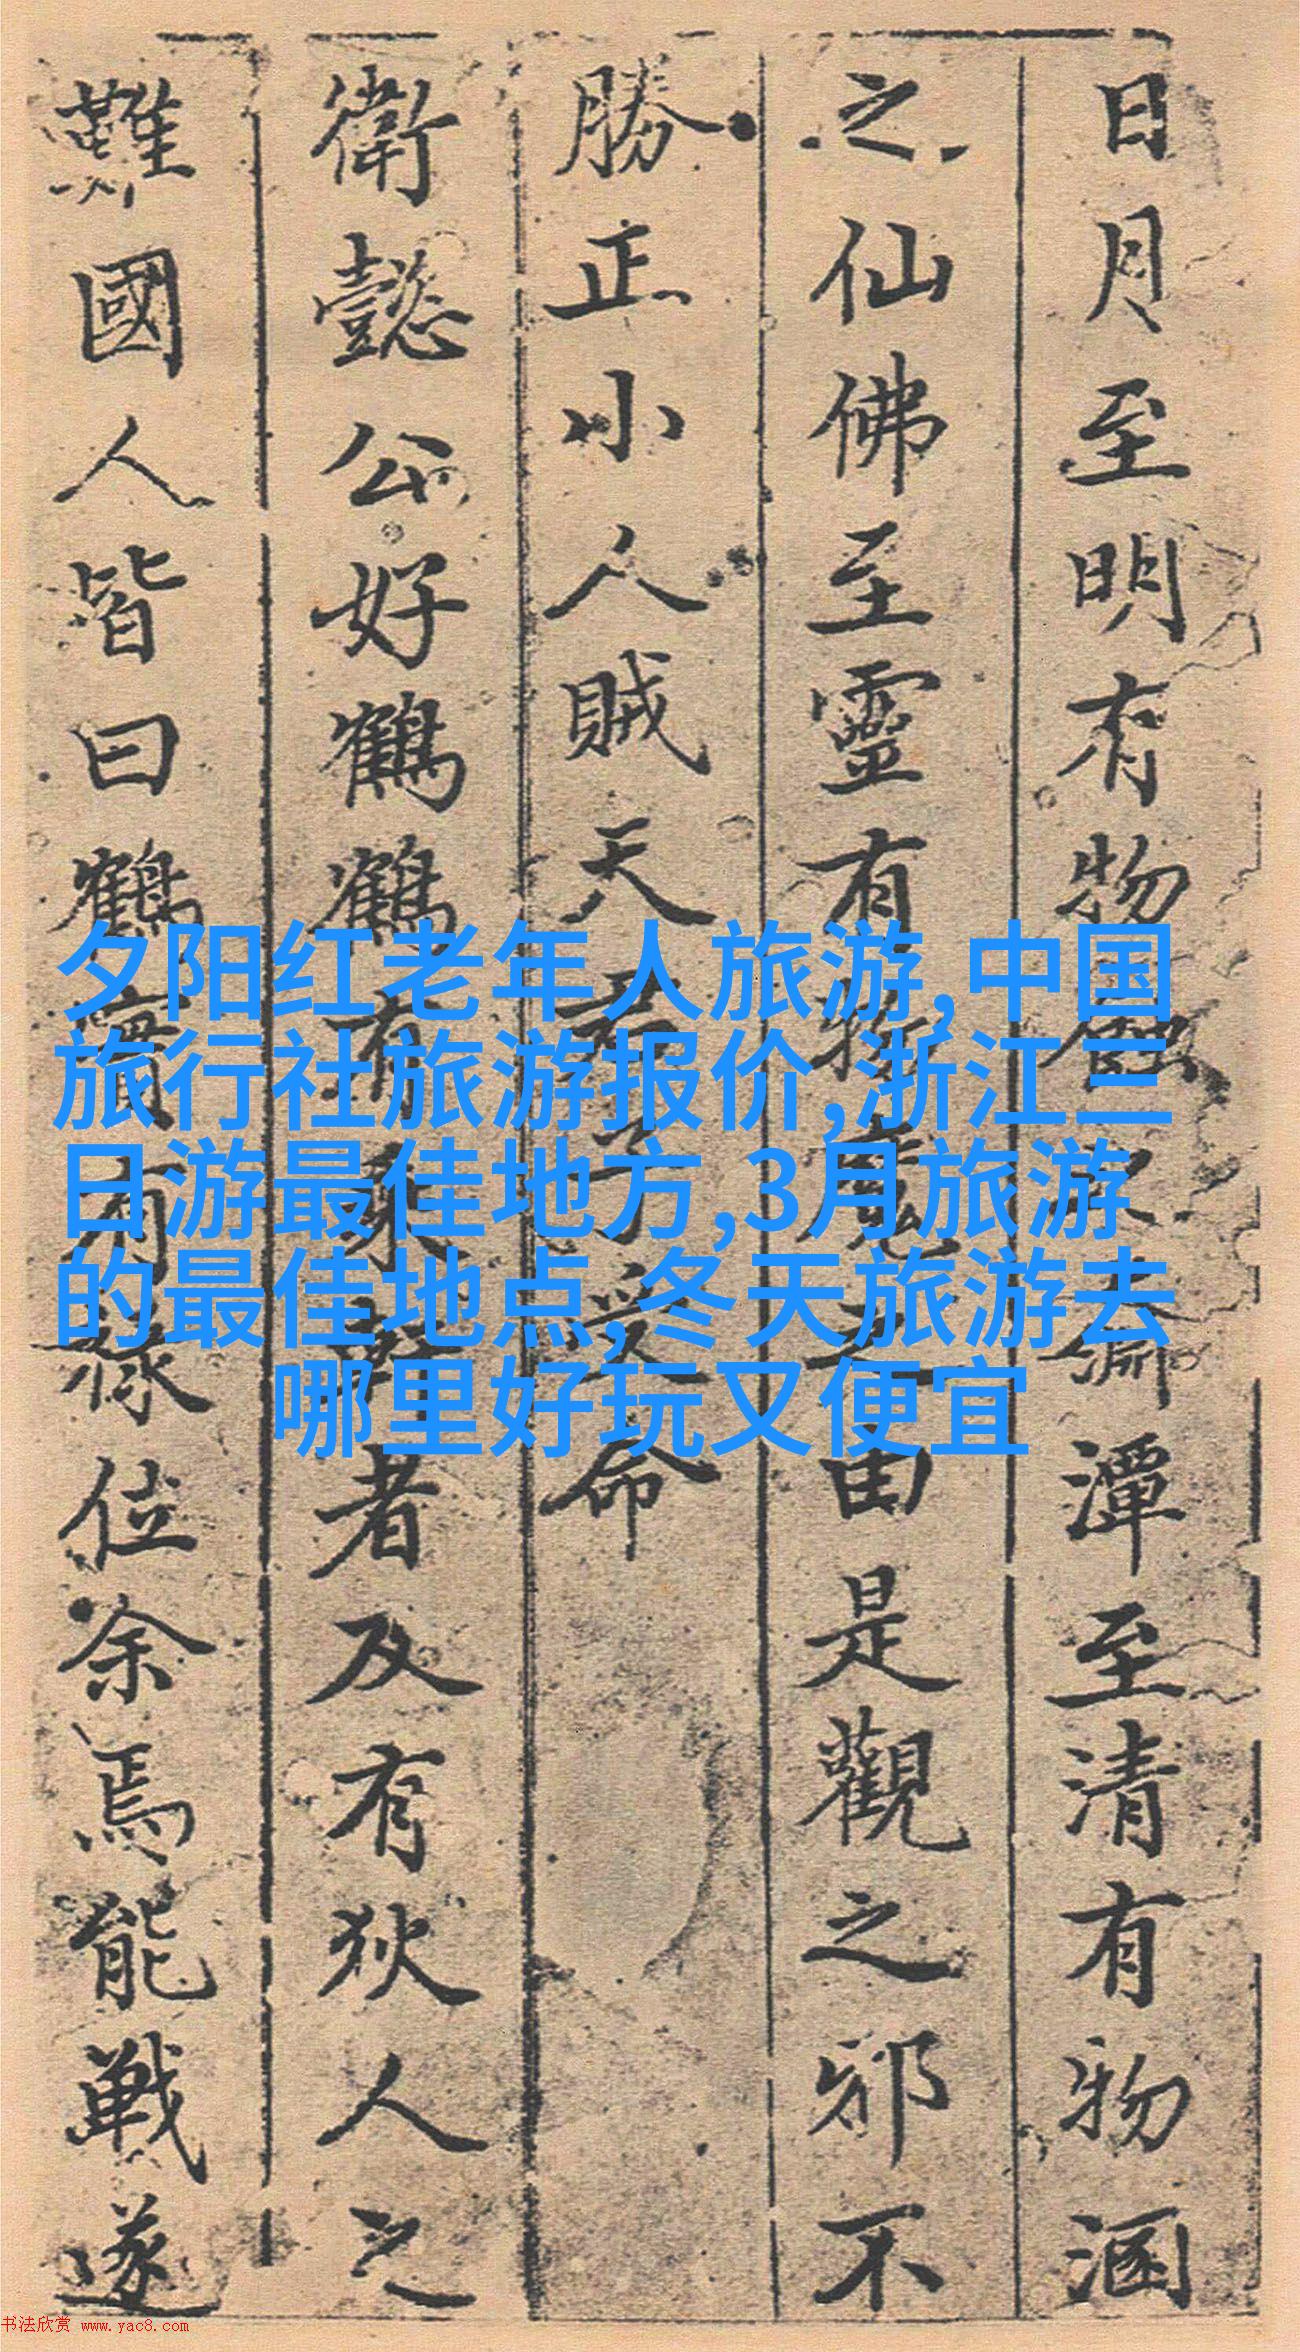 日月至明有物蝕之淵潭至清有物涵
之仙佛至靈有物魔之由是觀之邪不
勝正小人賊天君子受命
衛懿公好鶴鶴有乘軒者及有狄人之
難國人皆曰鶴實有祿位余焉能戰遂
夕阳红老年人旅游,中国
旅行社旅游报价,浙江三
日游最佳地方,3月旅游
的最佳地点,冬天旅游去
哪里好玩又便宜
书法欣赏 www.yac8.com